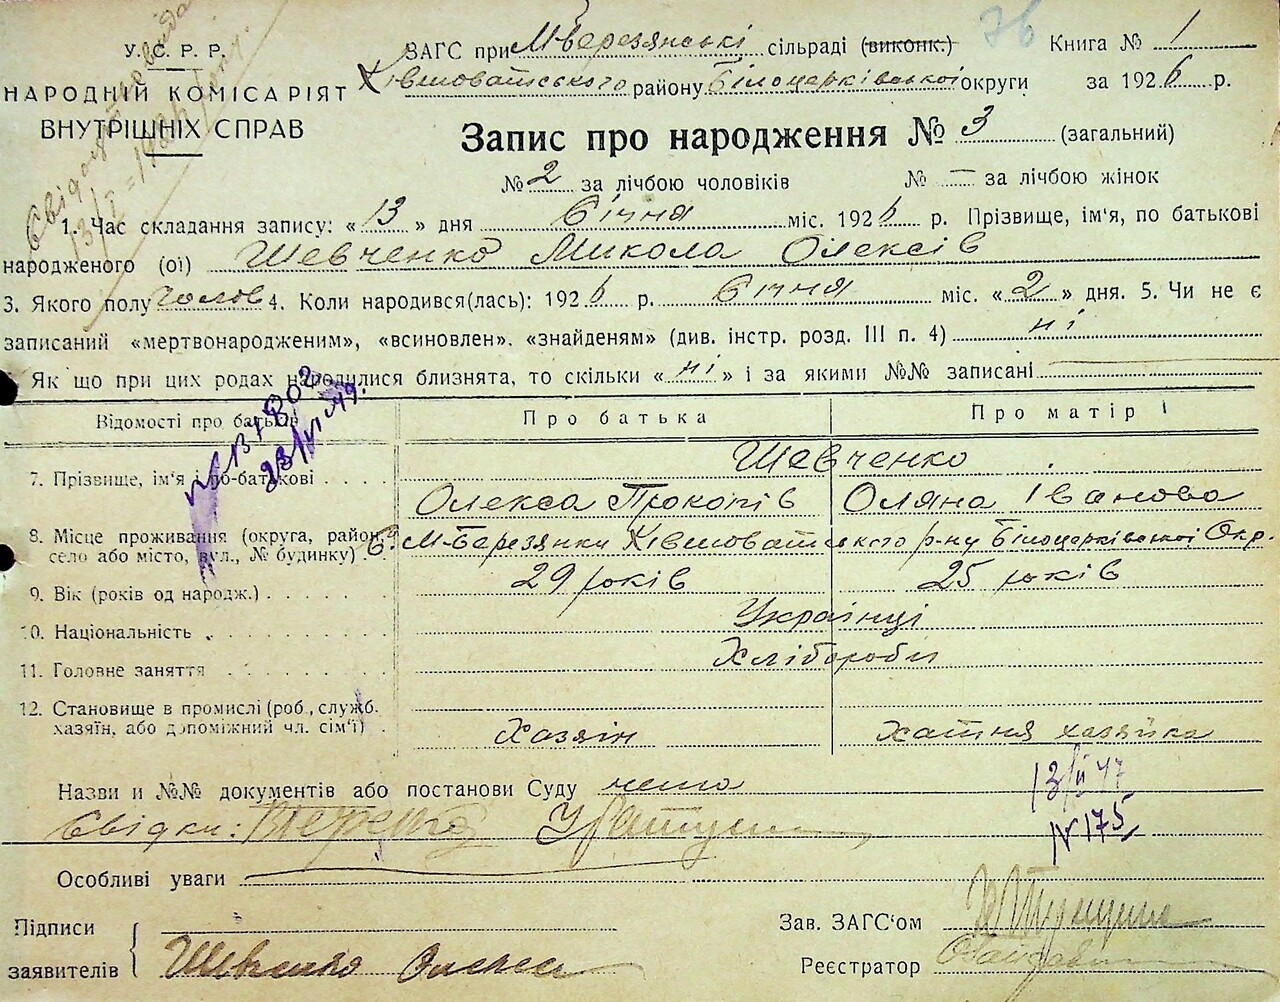 У.С.Р.Р.
НАРОДНІЙ КОМІСАРІЯТ
ВНУТРІШНІХ СПРАВ
ЗАГС при М-Березянські сільраді (виконк.) 76 Книга № 1
Хівшоватського району Білоцерківської округи за 1926 р.
Запис про народження № 3 (загальний)
№ 2 за лічбою чоловіків № — за лічбою жінок
1. Час складання запису: «13» дня Січня міс. 1926 р. Прізвище, ім'я, по батькові
народженого (ої) Шевченко Микола Олексів
3. Якого полу чолов 4. Коли народився(лась): 1926 р. Січня міс. «2» дня. 5. Чи не є
записаний «мертвонародженим», «всиновлен». «знайденям» (див. інстр. розд. III п. 4) ні
Як що при цих родах народилися близнята, то скільки «ні» і за якими №№ записані
Відомості про батьків Про батька Про матір
23/VI 49.
7. Прізвище, ім'я і по-батькові Шевченко
Олекса Прокопів Оляна Іванова
8. Місце проживання (округа, район,
село або місто, вул., № будинку) С. М-Березянки Хівшоватського р-ну Білоцерківської Окр.
9. Вік (років од народж.) 29 років 25 років
10. Національність Українці
11. Головне заняття Хлібороби
12. Становище в промислі (роб., служб.
хазяїн, або допоміжний чл. сім'ї) Хазяін хатня хазяйка
Назви и №№ документів або постанови Суду нема
13/II 47
Свідки:
N 175
Особливі уваги
Підписи
заявителів Шевченко Олекса
Зав. ЗАГС'ом
Реєстратор